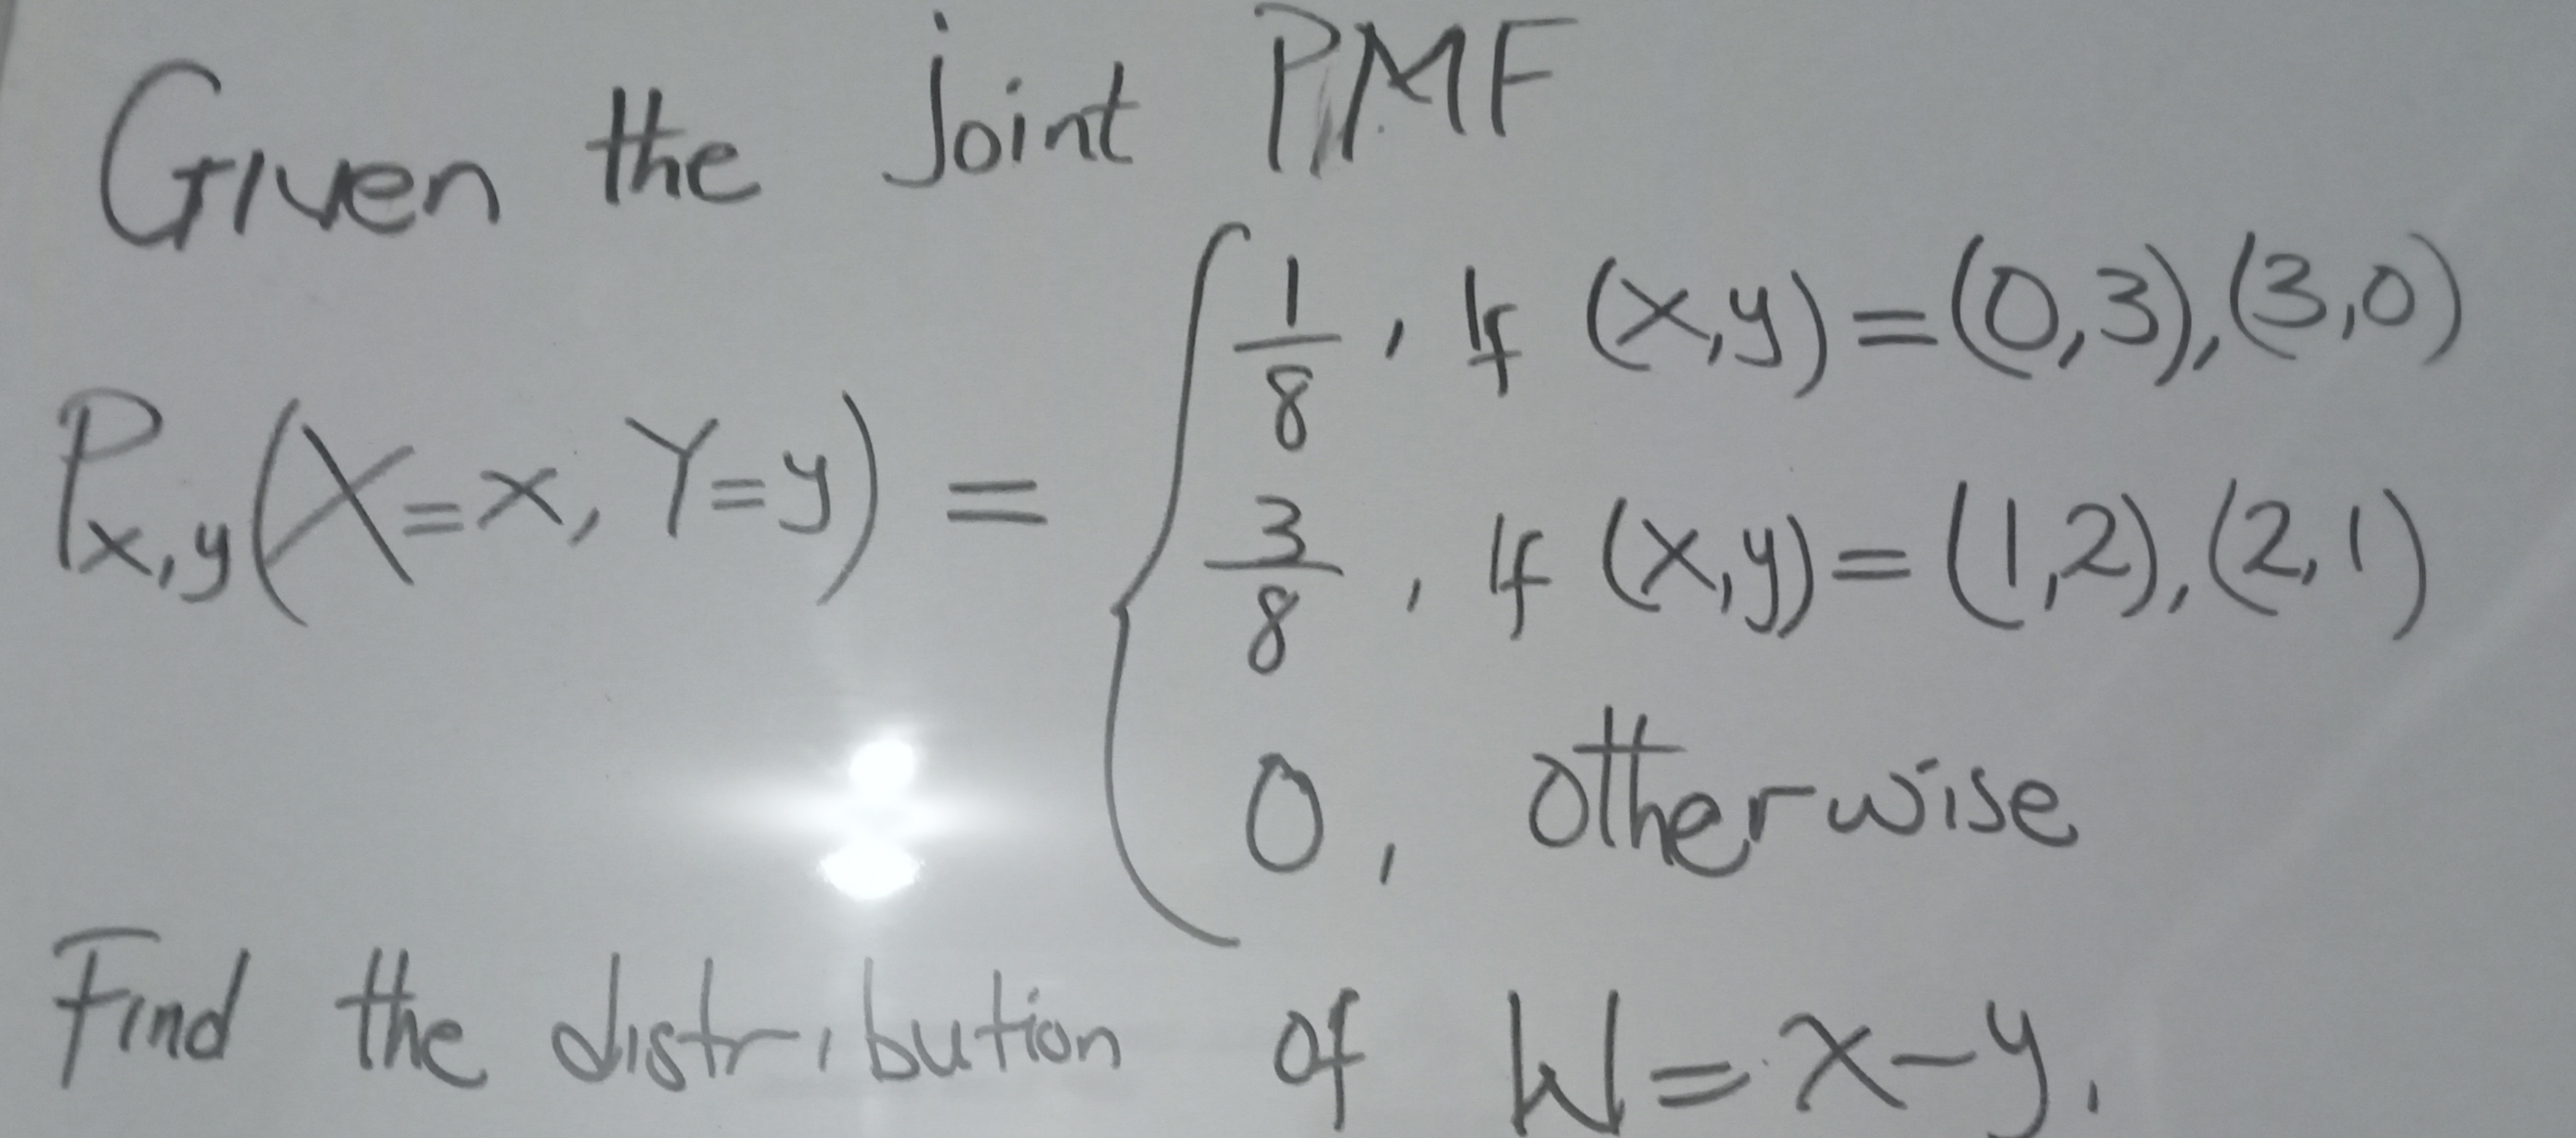 Given the joint PMF
P_{x,y}(X=x, Y=y) = { 1/8, If (x,y)=(0,3),(3,0)
3/8, If (x,y)=(1,2),(2,1)
0, otherwise
Find the distribution of W=x-y.